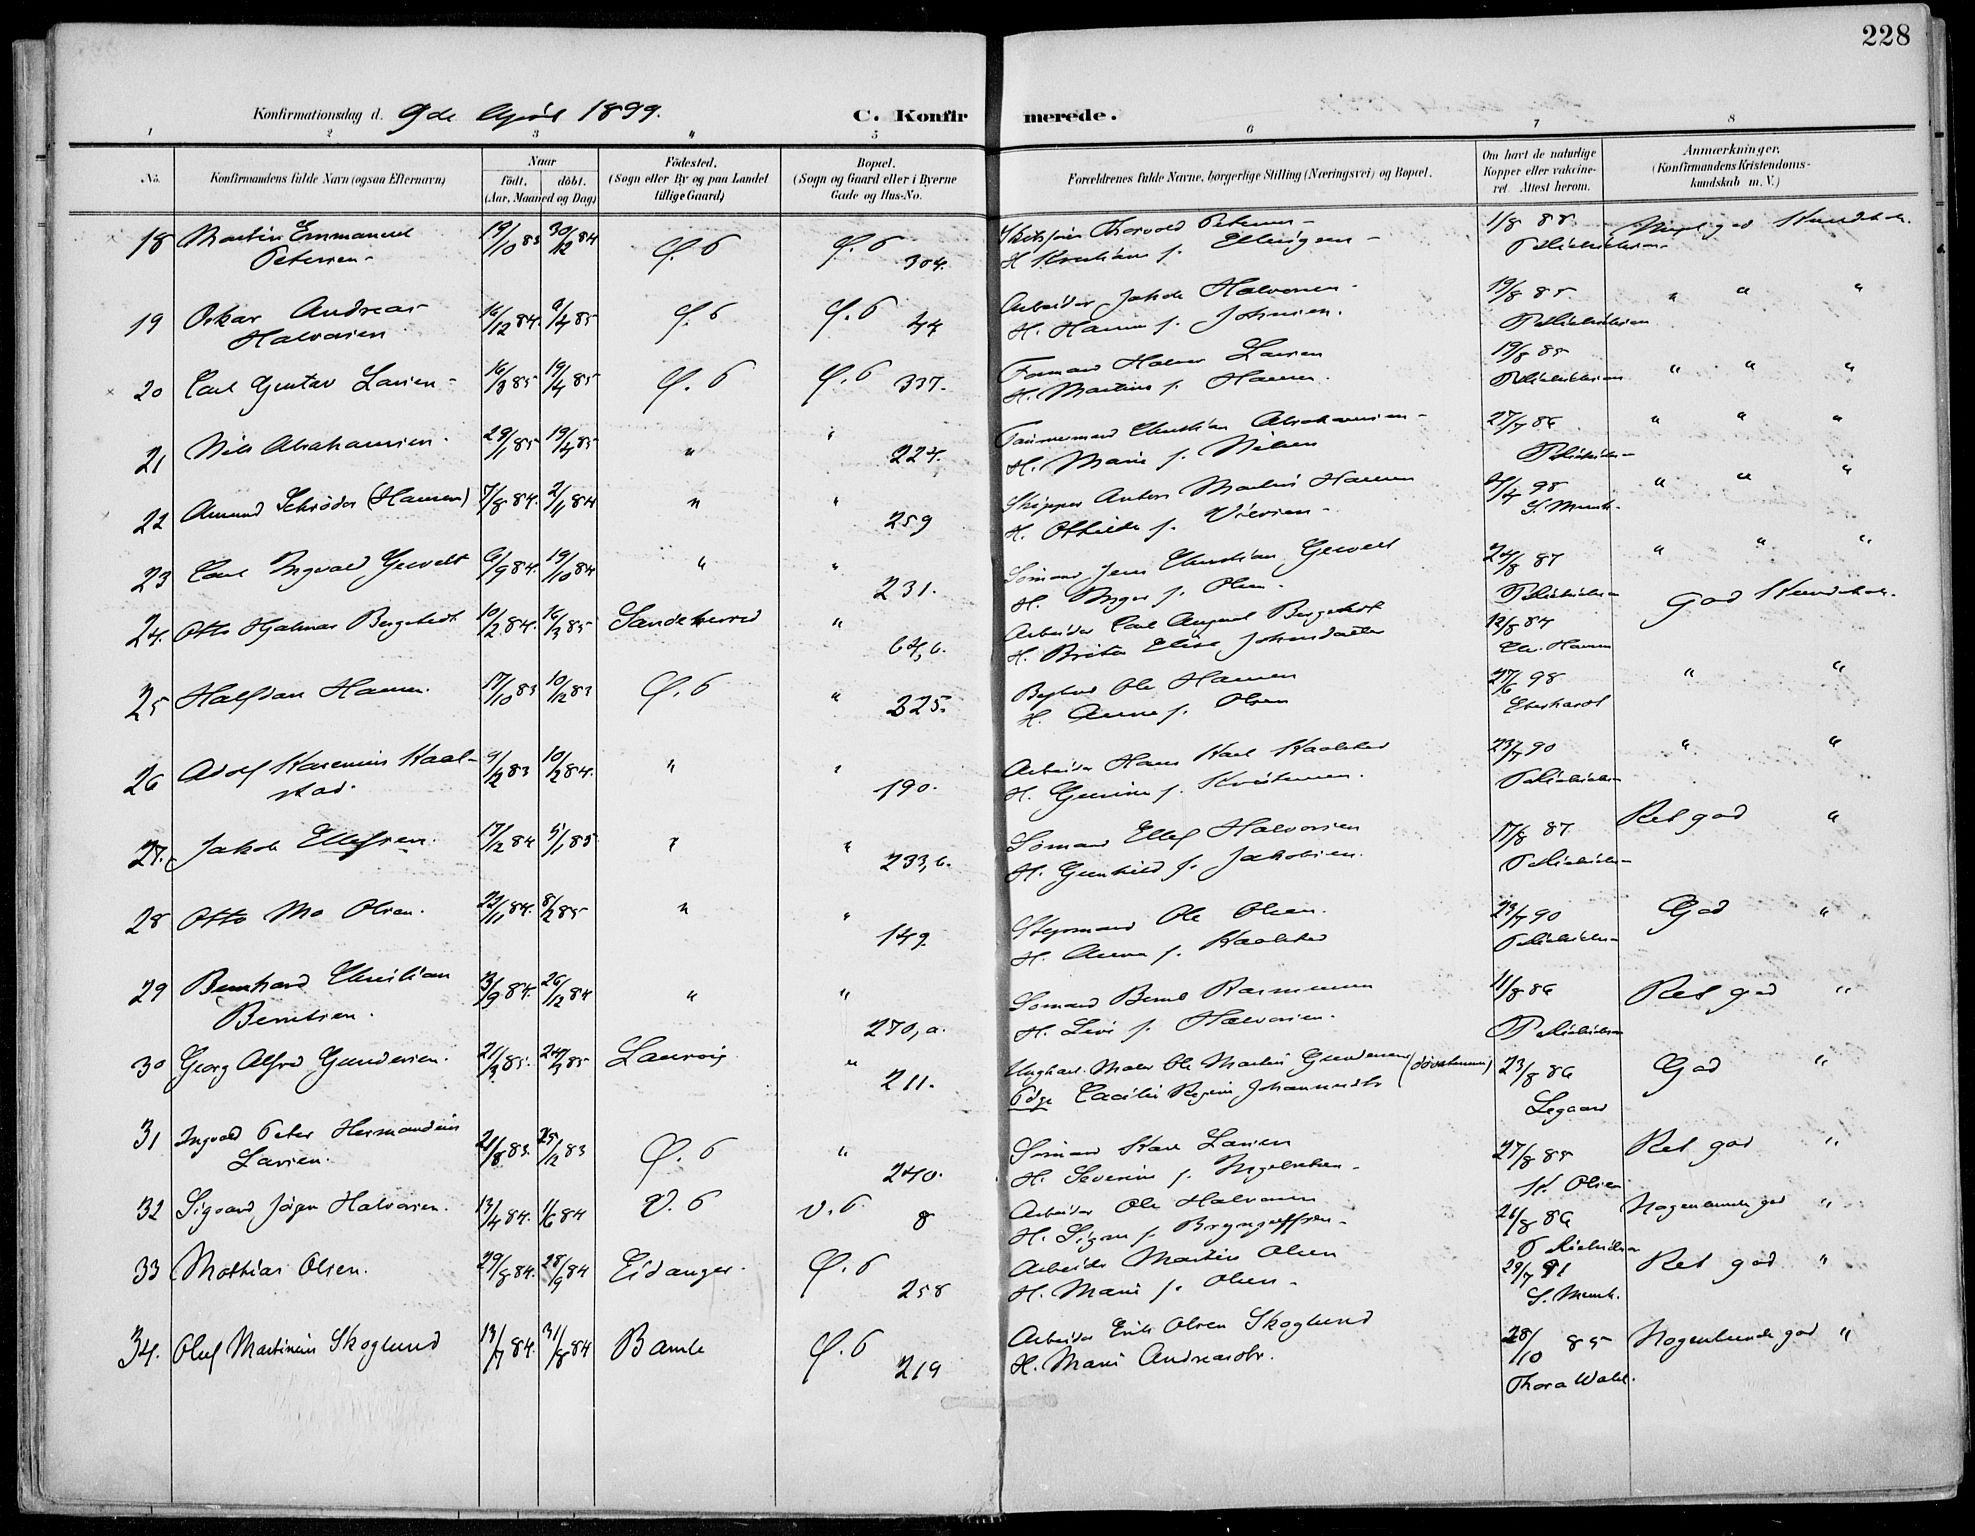 228
Konfirmationsdag d. 9de April 1899. C. Konfirmerede.
1 2 3 4 5 6 7 8
No. Konfirmandens fulde Navn (ogsaa Efternavn) Naar født. døbt. (Aar, Maaned og Dag) Fødested. (Sogn eller By og paa Landet tillige Gaard) Bopæl. (Sogn og Gaard eller i Byerne Gade og Hus-No. Forældrenes fulde Navne, borgerlige Stilling (Næringsvei) og Bopæl. Om havt de naturlige Kopper eller vaccineret. Attest herom. Anmærkninger. (Konfirmandens Kristendomskundskab m. V.)
18 Martin Emmanuel 19/10 83 30/12 84 Ø. 6 Ø. 6 304. Thorvald Petersen - 1/8 88
Petersen - H. Kristiane f. Ellingsen -
19 Oskar Andreas 16/12 84. 6/4 85 Ø. 6 Ø. 6 44 Arbeider Jakob Halvorsen. 19/8 85 " " "
Halvorsen H. Hanna f. Johnsen.
20 Carl Gustav Larsen - 16/3 85 19/4 85 Ø. 6 Ø. 6 337. Halvor Larsen 19/8 85 " " "
H. Martine f. Hansen.
21 Nils Abrahamsen. 29/1 85 19/4 85 " " 224. Tømmermand Christian Abrahamsen - 27/7 86 " " "
H. Marie f. Nilsen
22 Amund Schrøder (Hansen) 7/8 84. 2/11 84 " " 259 Skipper Anton Martin Hansen 4/4 98 " " "
H. Othilde f. S. Munk.
23 Carl Ingvald Gewelt 6/9 84. 19/10 84 " " 231. Sømand Jens Christian Gewelt 24/8 87 " " "
H. Inger f. Olsen.
24. Otto Hjalmar Bergstedt 10/12 84. 16/3 85 Sandeherred " 64, b. Arbeider Carl August Bergstedt 12/8 84 God Kundskab.
H. Brita Elise Johansdatter Hansen
25 Halfdan Hansen. 17/10 83 10/12 83 Ø. 6 " 325. Ole Hansen 27/6 98 " "
H. Anne f. Olsen Eberhardt
26 Adolf Karenius Kaal- 9/12 83 10/2 84. " " 190. Arbeider Hans Karl Kaalstad 23/7 90 " "
stad. H. Gurine f. Kristensen.
27. Jakob Ellefsen. 17/12 84 5/1 85 " " 233, b. Sømand Ellef Halvorsen 17/8 87 Ret god "
H. Gunhild f. Jakobsen.
28 Otto Mo Olsen. 22/11 84. 8/2 85 " " 149. Styrmand Ole Olsen. 23/7 90 God "
H. Anna f. Kaalstad
29 Bernhard Christian 3/9 84. 26/12 84 " " 270, a. Sømand Bernt Rasmussen 11/8 86 Ret god "
Berntsen. H. Live f. Halvorsen.
30 Georg Alfred Gundersen. 21/3 85. 24/5 85 Laurvig. " 211. Ungkarl Maler Ole Martin Gundersen (døvstum) 23/8 86 God "
Pige Cecilie Regine Johannesdtr Legaard
31 Ingvald Peter Hermandius 21/8 83. 25/12 83 Ø. 6 " 240. Sømand Karl Larsen 27/8 85 Ret god "
Larsen. H. Severine f. Ingebretsen - K. Olsen
32 Sigvard Jørgen Halvorsen. 13/4 84. 1/6 84 V. 6 V. 6 8 Arbeider Ole Halvorsen 26/8 86 Nogenlunde god "
H. Signe f. Bryngelfsen -
33 Mathias Olsen. 29/8 84. 28/9 84 Eidanger. Ø. 6 258 Arbeider Martin Olsen 29/7 91 Ret god "
H. Marie f. Olsen - S. Munk.
34. Oluf Martinius Skoglund 13/7 84. 31/8 84 Bamle Ø. 6 219 Arbeider Erik Olsen Skoglund 28/10 85 Nogenlunde god "
H. Marie Andreasdtr. Thora Wahl.